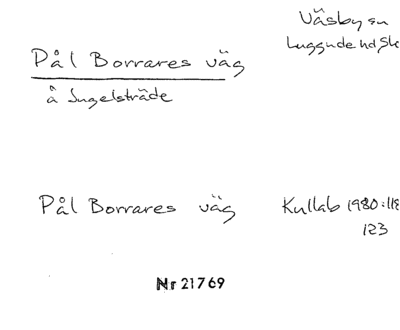 Väsby sn
Luggude hd Sk
Pål Borrares väg
å Ingelsträde
Pål Borrares väg
Kullab 1980:118
123
Nr 21769